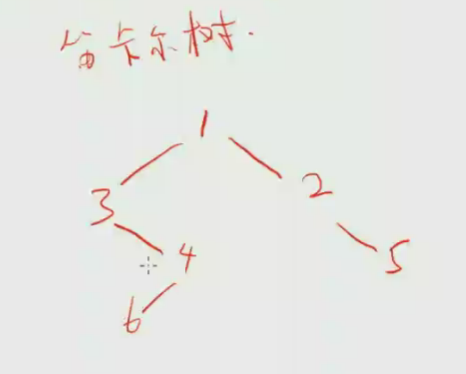 笛卡尔树.
1
3 2
4 5
6